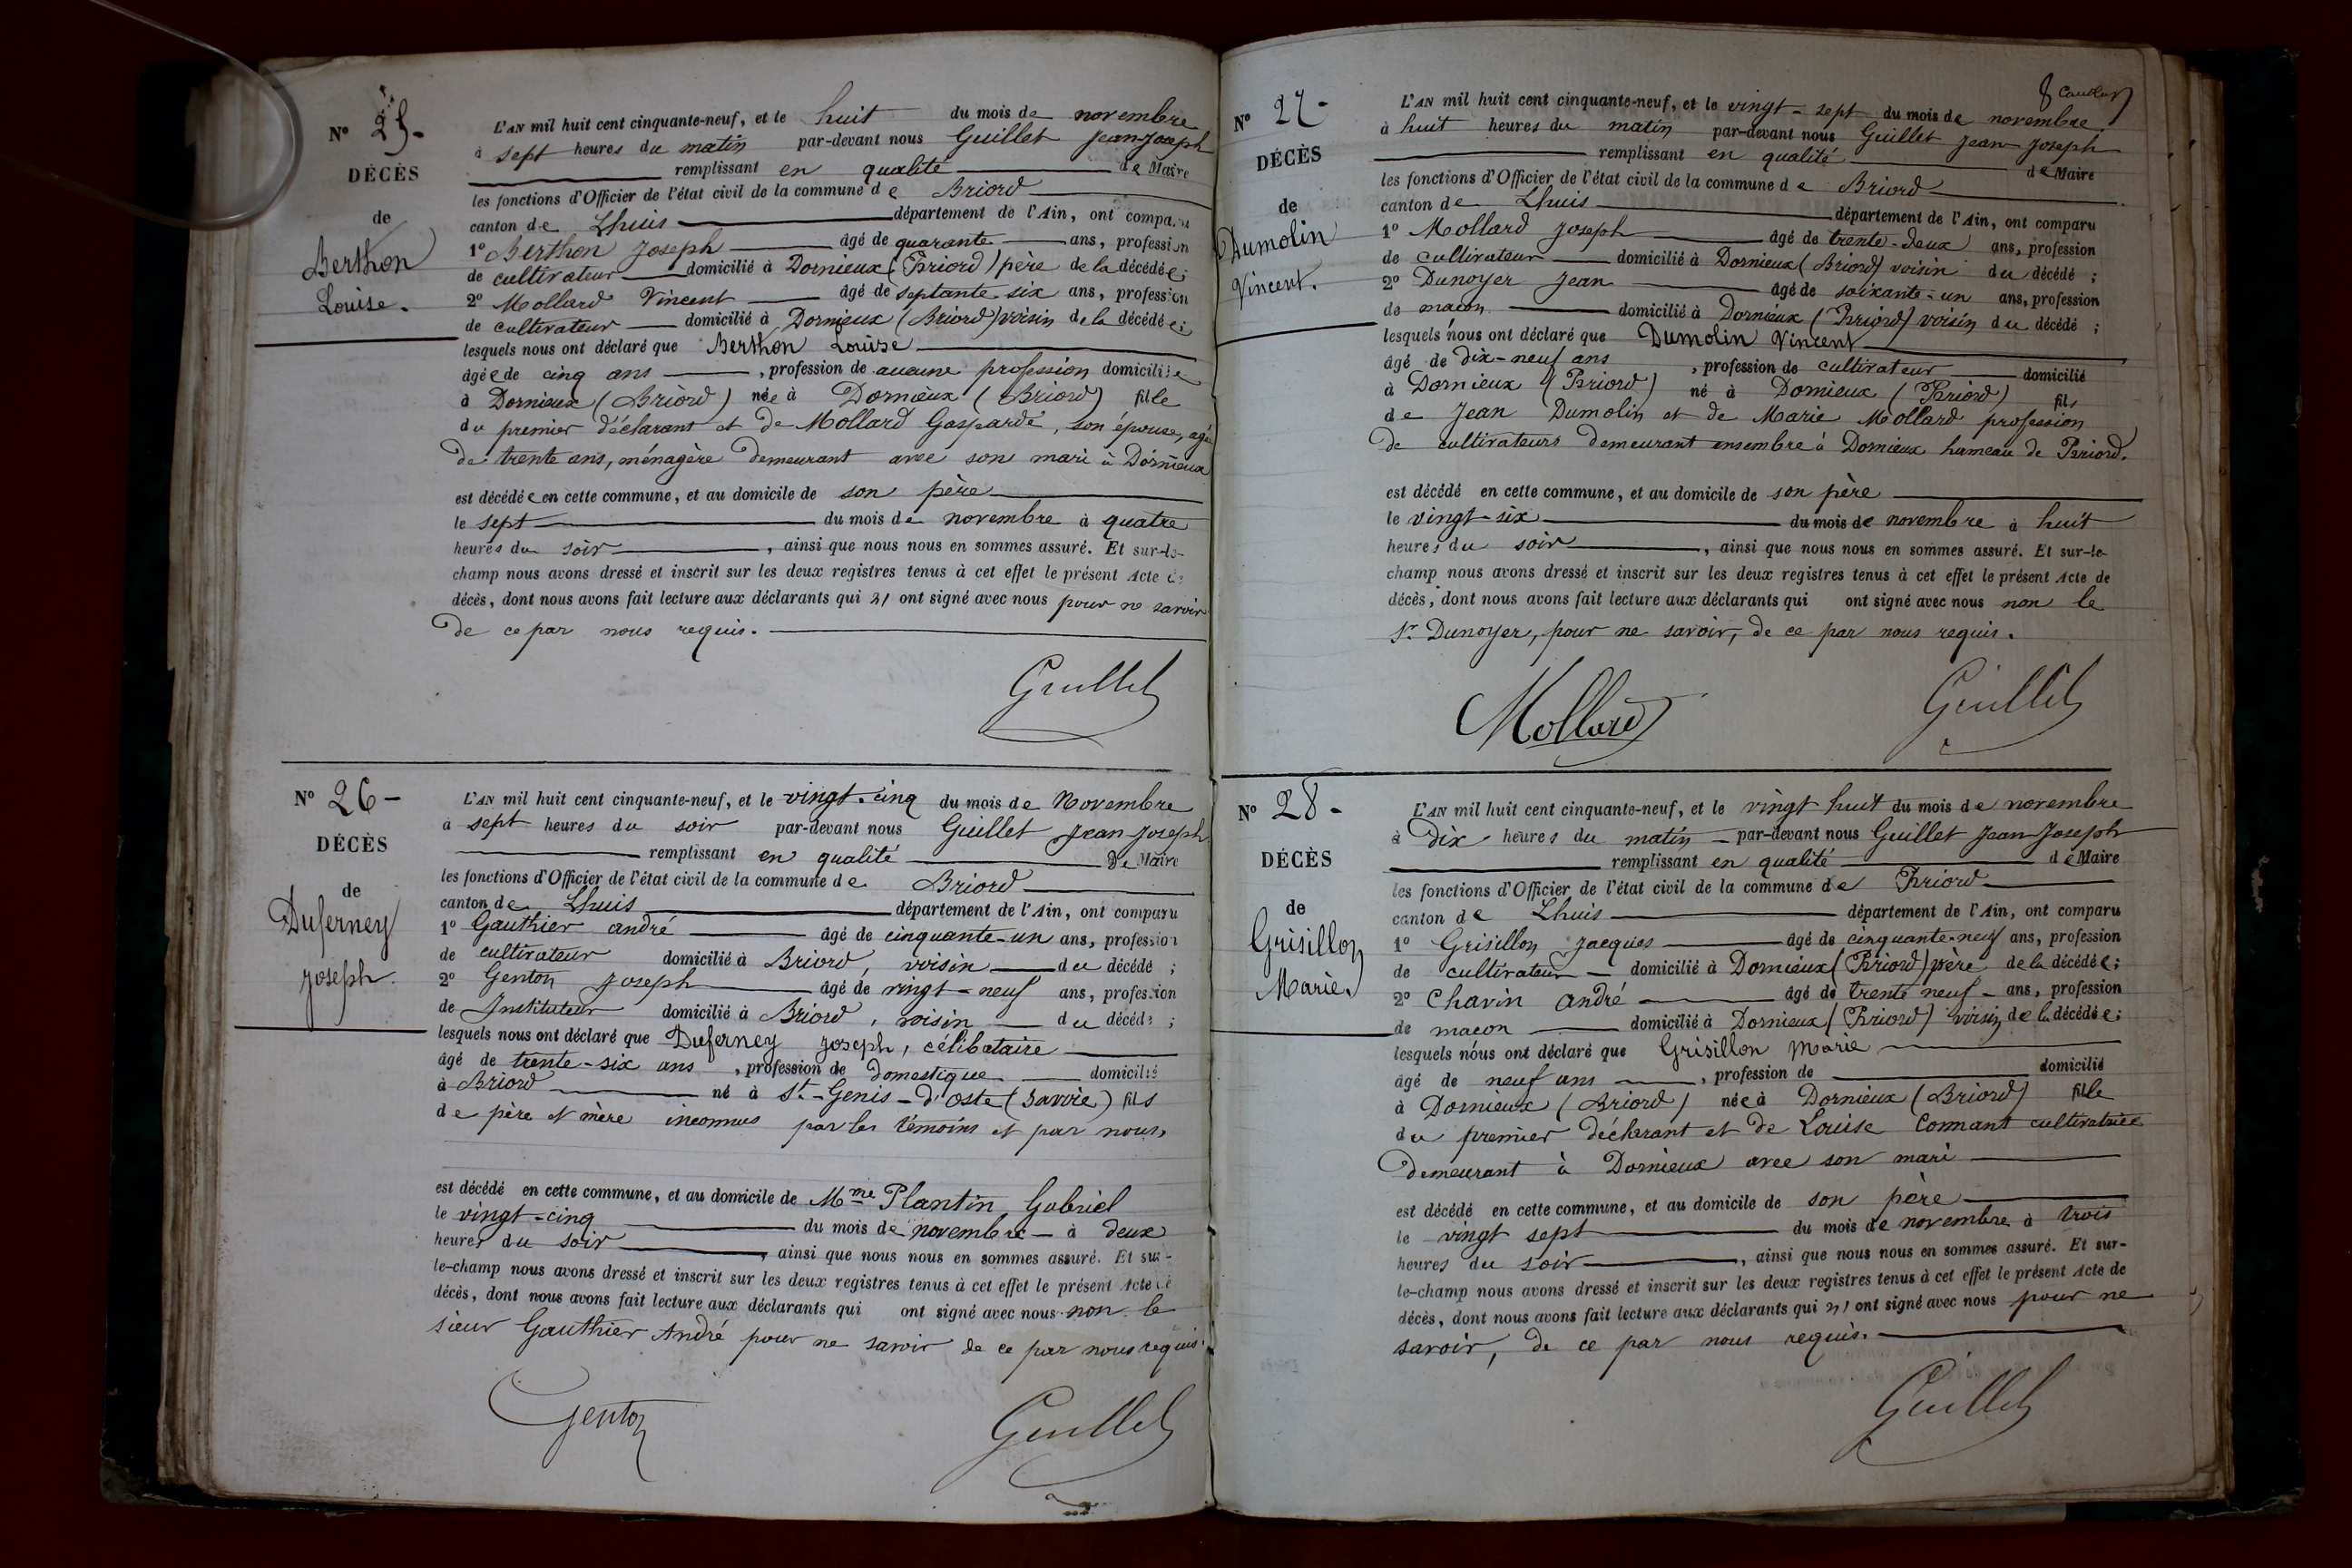 Nº 25-
DÉCÈS
de
Berthon
Louise.
L'AN mil huit cent cinquante-neuf, et le huit du mois de novembre
à sept heures du matin par-devant nous Guillet Jean Joseph
remplissant en qualité de Maire
les fonctions d'Officier de l'état civil de la commune de Briord
canton de Lhuis département de l'Ain, ont comparu
1º Berthon Joseph âgé de quarante ans, profession
de cultivateur domicilié à Dornieux (Briord) père de la décédée;
2º Mollard Vincent âgé de septante six ans, profession
de cultivateur domicilié à Dornieux (Briord) voisin de la décédée;
lesquels nous ont déclaré que Berthon Louise
âgée de cinq ans, profession de aucune profession domiciliée
à Dornieux (Briord) née à Dornieux (Briord) fille
du premier déclarant et de Mollard Gasparde, son épouse, agée
de trente ans, ménagère demeurant avec son mari à Dornieux
est décédée en cette commune, et au domicile de son père
le sept du mois de novembre à quatre
heures du soir, ainsi que nous nous en sommes assuré. Et sur-le-
champ nous avons dressé et inscrit sur les deux registres tenus à cet effet le présent Acte de
décès, dont nous avons fait lecture aux déclarants qui n' ont signé avec nous pour ne savoir
de ce par nous requis.
Guillet
Nº 26-
DÉCÈS
de
Duferney
Joseph.
L'AN mil huit cent cinquante-neuf, et le vingt-cinq du mois de Novembre
à sept heures du soir par-devant nous Guillet Jean Joseph
remplissant en qualité de Maire
les fonctions d'Officier de l'état civil de la commune de Briord
canton de Lhuis département de l'Ain, ont comparu
1º Gauthier andré âgé de cinquante-un ans, profession
de cultivateur domicilié à Briord, voisin du décédé;
2º Genton Joseph âgé de vingt-neuf ans, profession
de Instituteur domicilié à Briord, voisin du décédé;
lesquels nous ont déclaré que Duferney Joseph, célibataire
âgé de trente-six ans, profession de domestique domicilié
à Briord né à St-Genis-d'Oste (Savoie) fils
de père et mère inconnus par les témoins et par nous,
est décédé en cette commune, et au domicile de Mme Plantin Gabriel
le vingt-cinq du mois de novembre - à deux
heures du soir, ainsi que nous nous en sommes assuré. Et sur-
le-champ nous avons dressé et inscrit sur les deux registres tenus à cet effet le présent Acte de
décès, dont nous avons fait lecture aux déclarants qui ont signé avec nous non le
sieur Gauthier André pour ne savoir de ce par nous requis.
Genton
Guillet
8
Nº 27-
DÉCÈS
de
Dumolin
Vincent.
L'AN mil huit cent cinquante-neuf, et le vingt-sept du mois de novembre
à huit heures du matin par-devant nous Guillet Jean Joseph
remplissant en qualité de Maire
les fonctions d'Officier de l'état civil de la commune de Briord
canton de Lhuis département de l'Ain, ont comparu
1º Mollard Joseph âgé de trente-deux ans, profession
de cultivateur domicilié à Dornieux (Briord) voisin du décédé;
2º Dunoyer Jean âgé de soixante-un ans, profession
de macon domicilié à Dornieux (Briord) voisin du décédé;
lesquels nous ont déclaré que Dumolin Vincent
âgé de dix-neuf ans, profession de cultivateur domicilié
à Dornieux (Briord) né à Dornieux (Briord) fils
de Jean Dumolin et de Marie Mollard profession
de cultivateurs demeurant ensembre à Dornieux hameau de Briord.
est décédé en cette commune, et au domicile de son père
le vingt-six du mois de novembre à huit
heures du soir, ainsi que nous nous en sommes assuré. Et sur-le-
champ nous avons dressé et inscrit sur les deux registres tenus à cet effet le présent Acte de
décès, dont nous avons fait lecture aux déclarants qui ont signé avec nous non le
Sr Dunoyer, pour ne savoir, de ce par nous requis.
Mollard
Guillet
Nº 28-
DÉCÈS
de
Grisillon
Marie.
L'AN mil huit cent cinquante-neuf, et le vingt huit du mois de novembre
à dix heures du matin - par-devant nous Guillet Jean Joseph
remplissant en qualité de Maire
les fonctions d'Officier de l'état civil de la commune de Briord
canton de Lhuis département de l'Ain, ont comparu
1º Grisillon Jacques âgé de cinquante-neuf ans, profession
de cultivateur domicilié à Dornieux (Briord) père de la décédée;
2º Chavin André âgé de trente neuf ans, profession
de macon domicilié à Dornieux (Briord) voisin de la décédée;
lesquels nous ont déclaré que Grisillon Marie
âgé de neuf ans, profession de domicilié
à Dornieux (Briord) née à Dornieux (Briord) fille
du premier déclarant et de Louise Connant cultivatrice
demeurant à Dornieux avec son mari
est décédé en cette commune, et au domicile de son père
le vingt sept du mois de novembre à trois
heures du soir, ainsi que nous nous en sommes assuré. Et sur-
le-champ nous avons dressé et inscrit sur les deux registres tenus à cet effet le présent Acte de
décès, dont nous avons fait lecture aux déclarants qui n' ont signé avec nous pour ne
savoir, de ce par nous requis.
Guillet